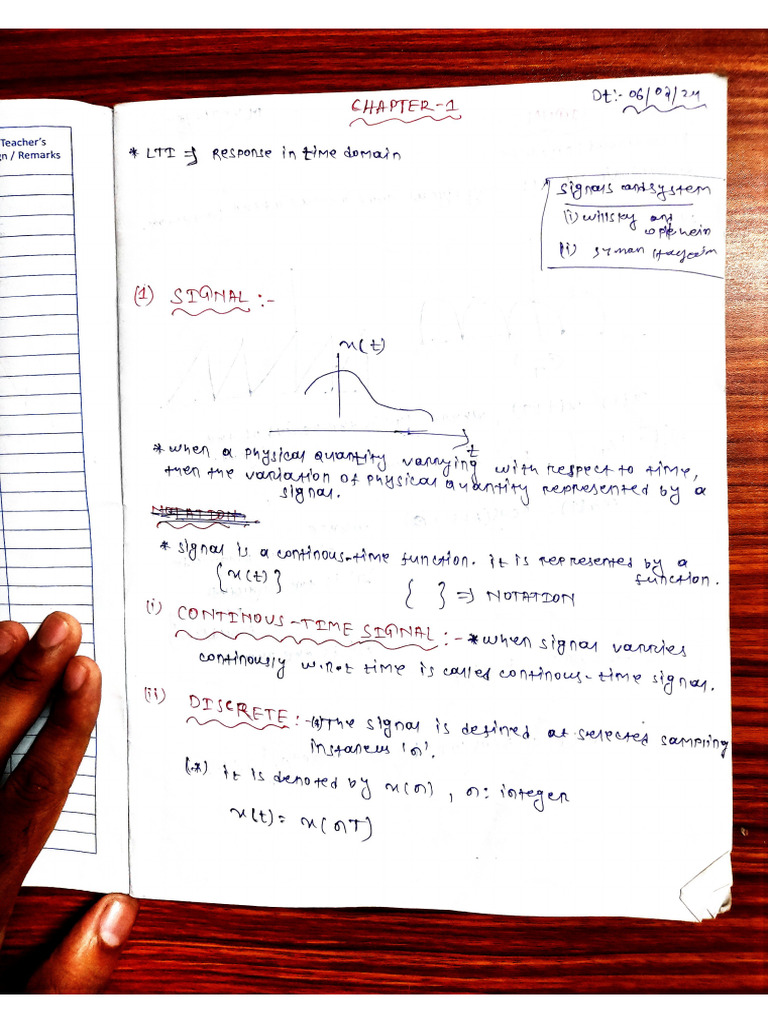 Teacher's
gn / Remarks
CHAPTER-1
Dt:- 06/07/24
* LTI ⇒ Response in time domain
Signals and system
(i) willsky and
oppenhein
(ii) syman Hayeim
(1) SIGNAL :-
x(t)
t
* when a physical quantity varrying with respect to time,
then the variation of physical quantity represented by a
signal.
NOTATION
* signal is a continous-time function. it is represented by a
function.
{x(t)} { } ⇒ NOTATION
(i) CONTINOUS-TIME SIGNAL:- * when signal varries
continously w.r.t time is called continous-time signal.
(ii) DISCRETE:- (*) The signal is defined at selected sampling
instances 'n'.
(*) it is denoted by x(n), n: integer
x(t) = x(nT)